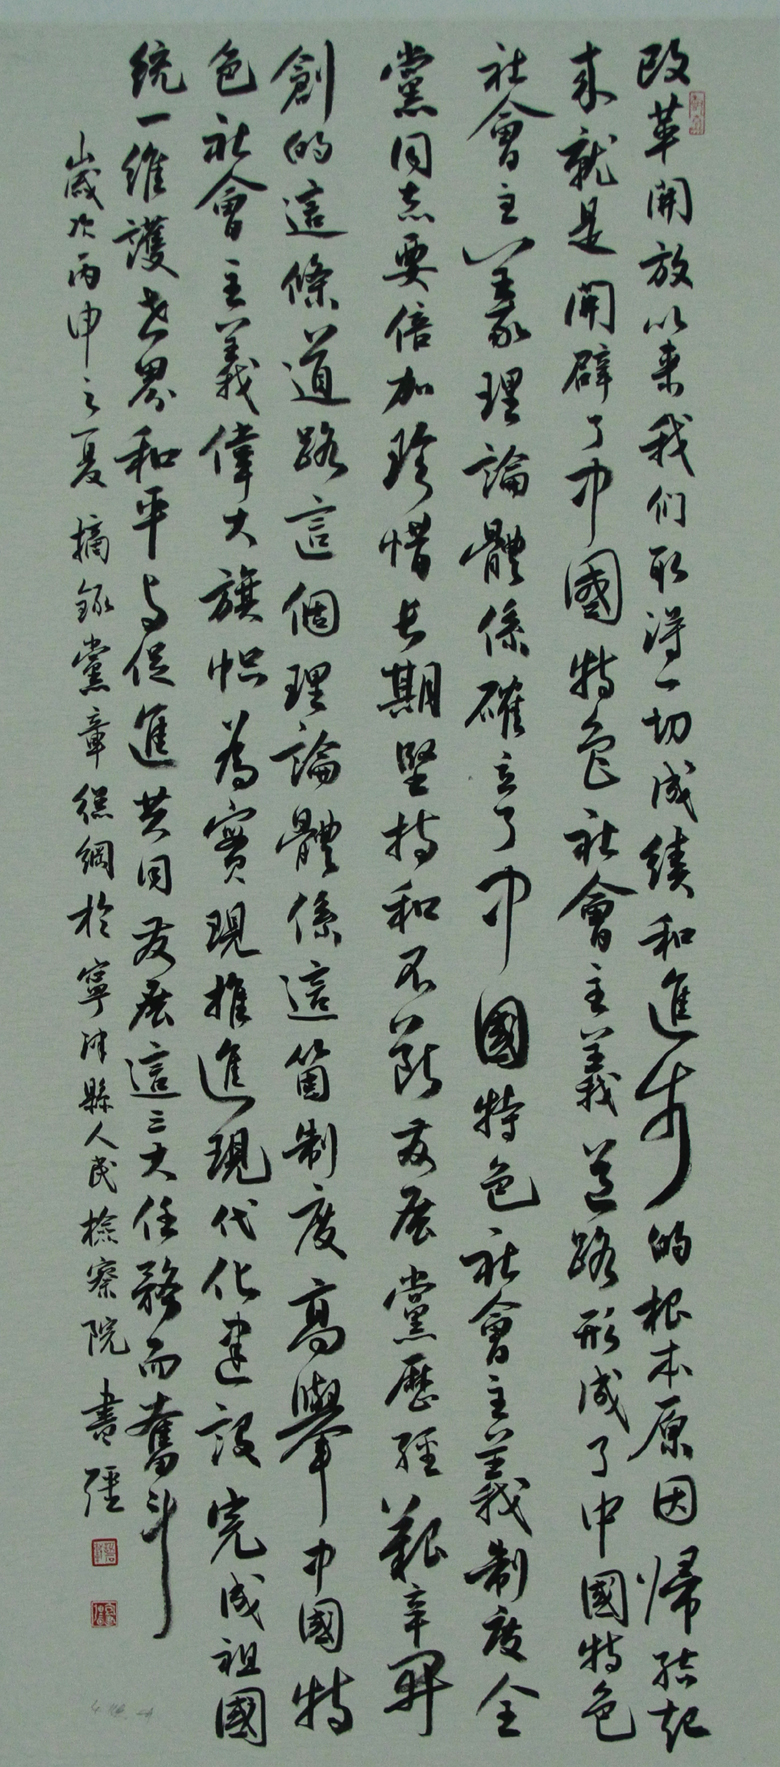 改革開放以来我们取得一切成績和進步的根本原因歸結起
来就是開辟了中國特色社會主義道路形成了中國特色
社會主義理論體係確立了中國特色社會主義制度全
黨同志要倍加珍惜長期堅持和不斷發展黨歷經艱辛開
創的這條道路這個理論體係這箇制度高舉中國特
色社會主義偉大旗幟為實現推進現代化建設完成祖國
統一維護世界和平与促進共同發展這三大任務而奮斗
歲次丙申之夏摘錄黨章總綱於寧津縣人民檢察院書經